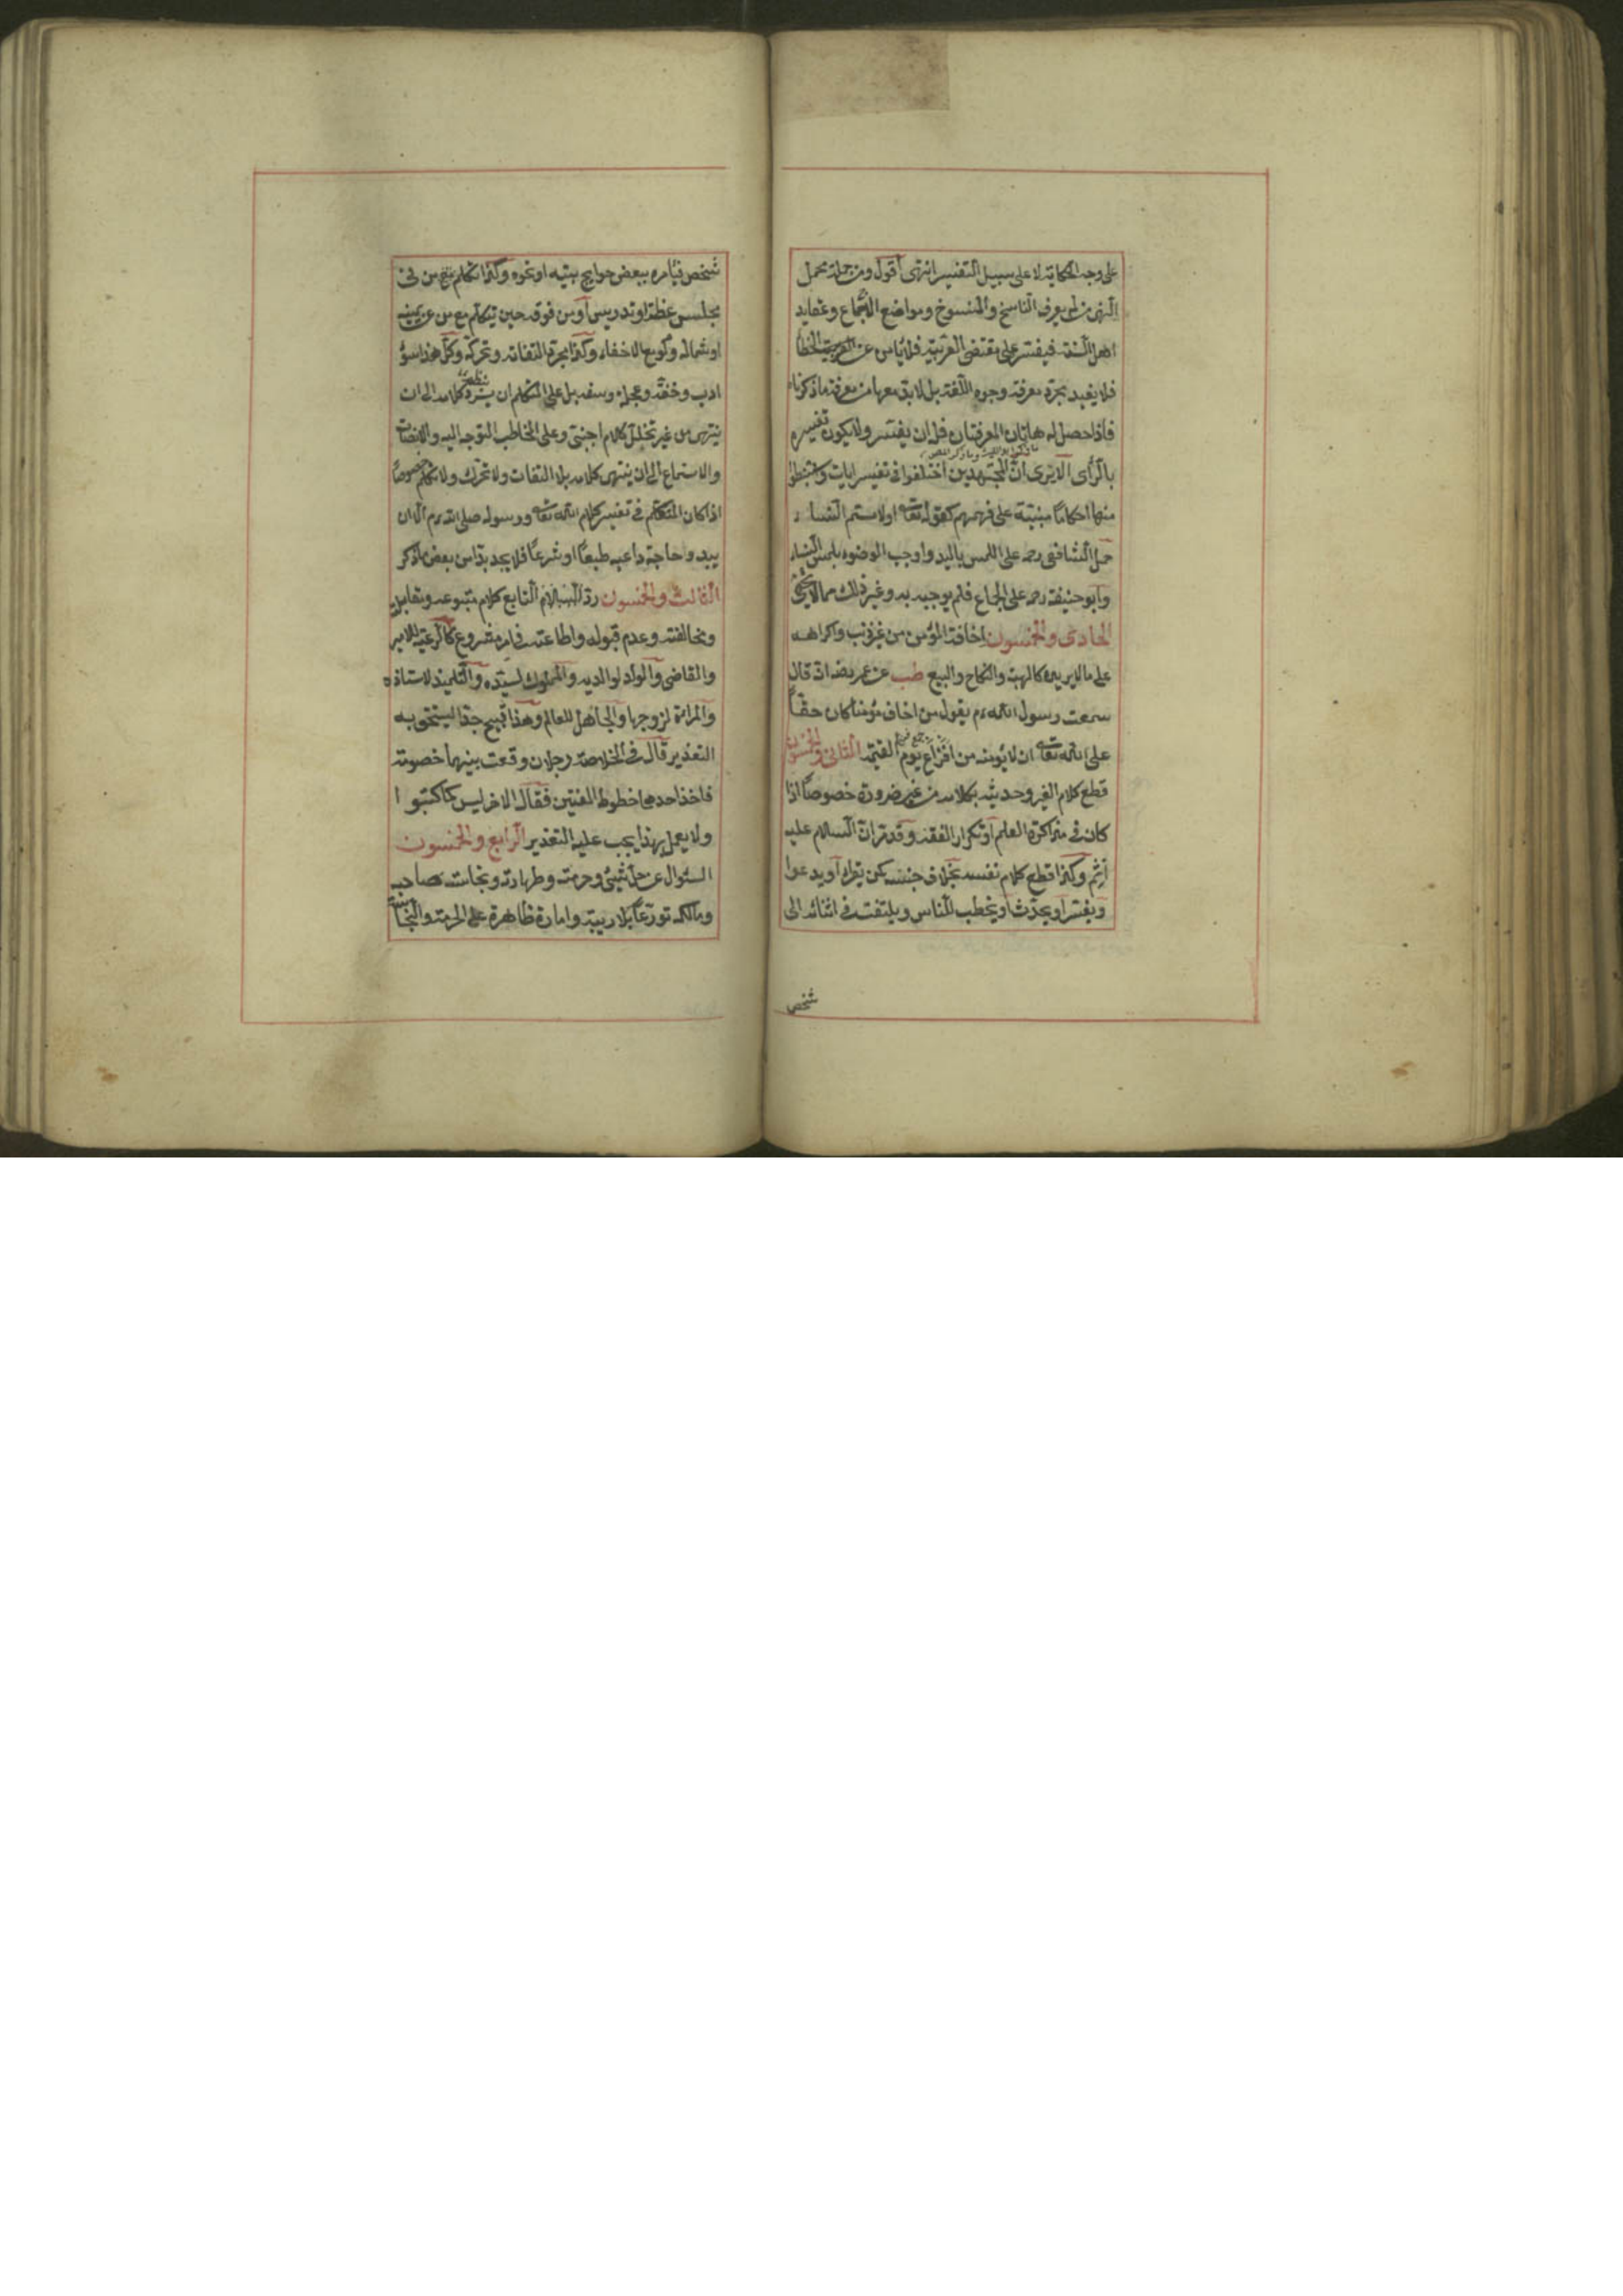 على وجه الحكاية لا على سبيل التفسير انتهى اقول ومن جملة محمل
النهى من لم يعرف الناسخ والمنسوخ ومواضع الاجماع وعقايد
اهل السنة فيفسر على مقتضى العربية فلا يأمن عن الخطأ
فلا يفيد مجرد معرفة وجوه اللغة بل لا بد معها من معرفة ما ذكرناه
فاذا حصل له هاتان المعرفتان فله ان يفسر ولا يكون تفسيره
بالرأى الا يرى ان المجتهدين اختلفوا فى تفسير ايات واستنبطوا
منها احكاما مبنية على فهمهم كقوله تعالى او لامستم النساء
حمل الشافعى رحمه على اللمس باليد واوجب الوضوء بلمس النساء
وابو حنيفة رحمه على الجماع فلم يوجبه به وغير ذلك مما لا يخفى
الحادى والخمسون اخافة المؤمن من غير ذنب واكراهه
على ما لا يريده كالهبة والنكاح والبيع طب عن عمر رضه انه قال
سمعت رسول الله عم يقول من اخاف مؤمنا كان حقا
على الله تعالى ان لا يؤمنه من افزاع يوم القيمة الثانى والخمسون
قطع كلام الغير وحديثه بكلامه من غير ضرورة خصوصا اذا
كان فى مذاكرة العلم او تكرار الفقه وقد مر ان السلام عليه
اثم وكذا قطع كلام نفسه بخلاف جنسه كمن يقرأ او يدعوا
ويفسر او يحدث او يخطب للناس ويلتفت فى اثنائه الى
شخص
شخص فيأمره ببعض حوايج بيته او نحوه وكذا تكلم مع من فى
مجلس عظة او تدريس او من فوقه حين يتكلم مع من عن يمينه
او شماله ولو مع الاخفاء وكذا مجرد التفاته وتحركه وكل هذا سوء
ادب وخفة وعجلة وسفه بل على المتكلم ان يسرد كلامه الى ان
ينتهى من غير تخلل كلام اجنبى وعلى المخاطب التوجه اليه والانصات
والاستماع الى ان ينتهى كلامه بلا التفات ولا تحرك ولا تكلم خصوصا
اذا كان المتكلم فى تفسير كلام الله تعالى ورسوله صلى الله عم الا ان
يبدو حاجة داعية طبعا او شرعا فلا يجد بدا من بعض ما ذكر
الثالث والخمسون رد التابع كلام متبوعه ومقابلته
ومخالفته وعدم قبوله واطاعته فى امر مشروع كالرعية للامير
والقاضى والولد لوالديه والمملوك لسيده والتلميذ لاستاذه
والمرأة لزوجها والجاهل للعالم وهذا قبيح جدا يستحق به
التعذير قال فى الخلاصة رجلان وقعت بينهما خصومة
فاخذ احدهما خطوط المفتين فقال الاخر ليس كما كتبوا
ولا يعمل بهذا يجب عليه التعذير الرابع والخمسون
السئوال عن حل شيئ وحرمته وطهارته ونجاسته صاحبه
ومالكه تورعا بلا ريبة وامارة ظاهرة على الحرمة والنجاسة